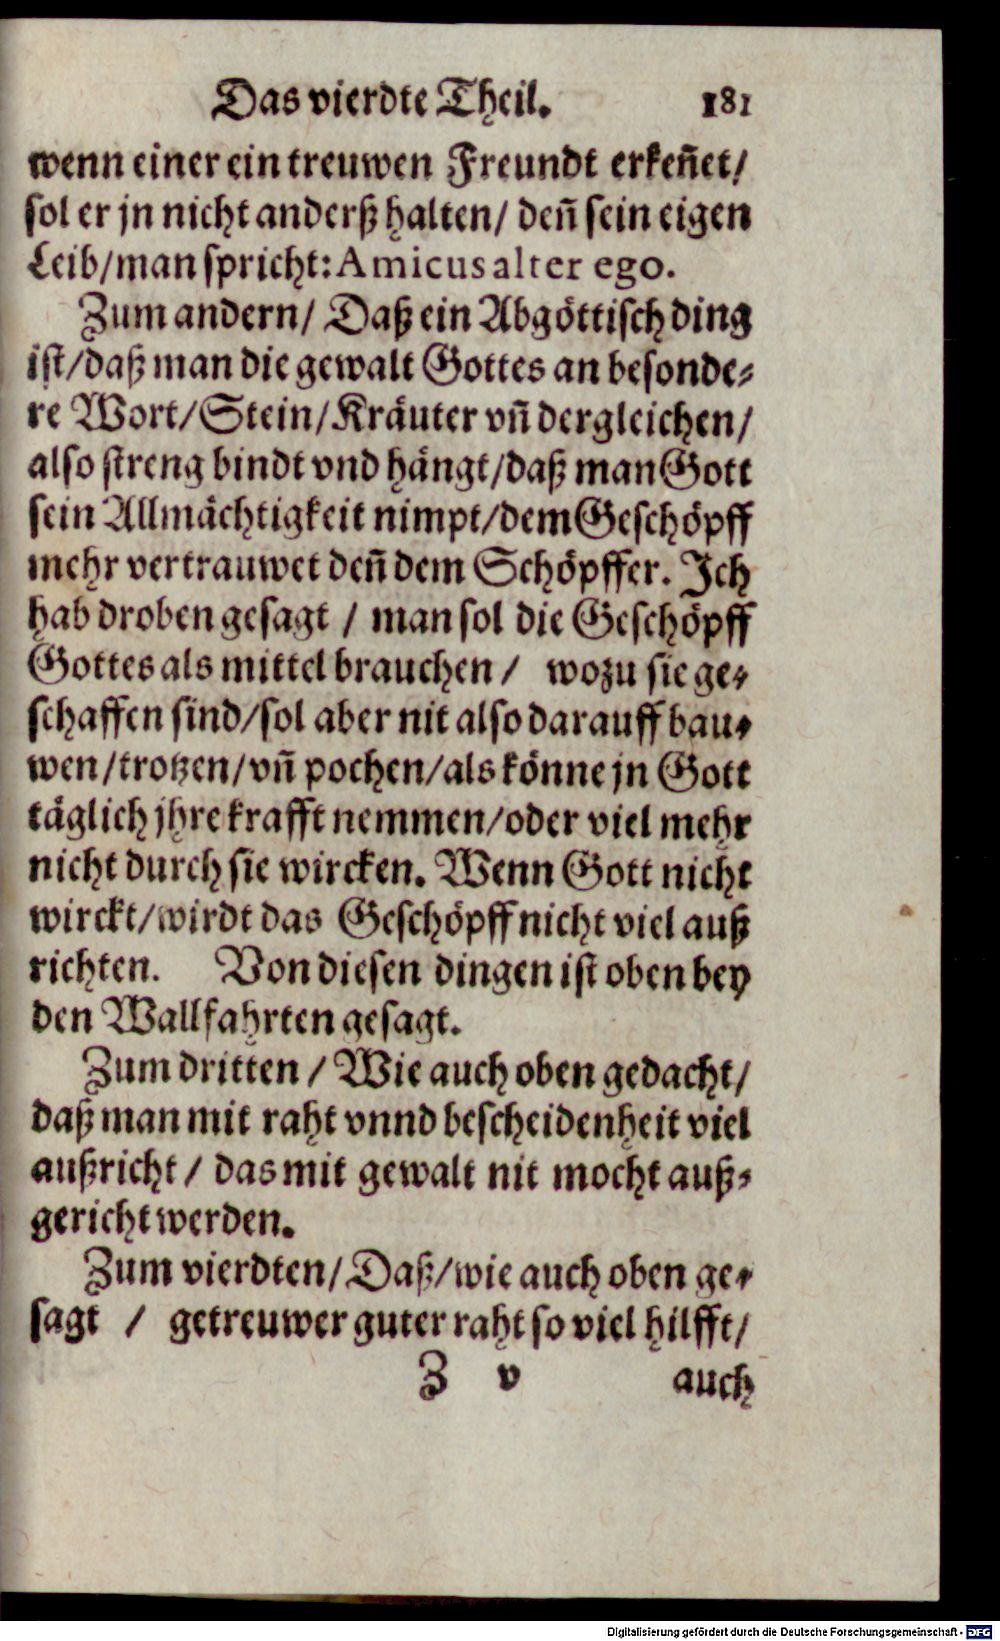 Das vierdte Theil. 181
wenn einer ein treuwen Freundt erkeñet/
sol er jn nicht anderß halten/ deñ sein eigen
Leib/man spricht: Amicus alter ego.
Zum andern/ Daß ein Abgöttisch ding
ist/daß man die gewalt Gottes an besonde-
re Wort/Stein/Kräuter vñ dergleichen/
also streng bindt vnd hängt/daß man Gott
sein Allmächtigkeit nimpt/dem Geschöpff
mehr vertrauwet deñ dem Schöpffer. Ich
hab droben gesagt / man sol die Geschöpff
Gottes als mittel brauchen / wozu sie ge-
schaffen sind/sol aber nit also darauff bau-
wen/trotzen/vñ pochen/als könne jn Gott
täglich jhre krafft nemmen/oder viel mehr
nicht durch sie wircken. Wenn Gott nicht
wirckt/wirdt das Geschöpff nicht viel auß
richten. Von diesen dingen ist oben bey
den Wallfahrten gesagt.
Zum dritten / Wie auch oben gedacht/
daß man mit raht vnnd bescheidenheit viel
außricht / das mit gewalt nit mocht auß-
gericht werden.
Zum vierdten/ Daß/wie auch oben ge-
sagt / getreuwer guter raht so viel hilfft/
Z v auch
Digitalisierung gefördert durch die Deutsche Forschungsgemeinschaft - DFG